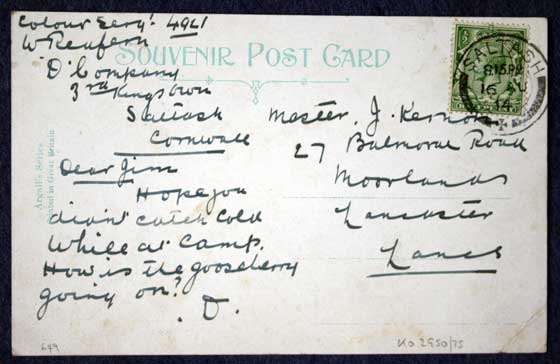 Colour Sergt 4921
W Renfern
SOUVENIR POST CARD
'D' Company
3rd Kings Own
Saltash
Cornwall
Dear Jim
Hope you
didn't catch cold
while at camp.
How is the gooseberry
going on?
D.
Master J. Kernon
27 Balmoral Road
Moorlands
Lancaster
Lancs
SALTASH
8.15PM
16 AU
14
Argall's Series.
Printed in Great Britain
KO 2950/75